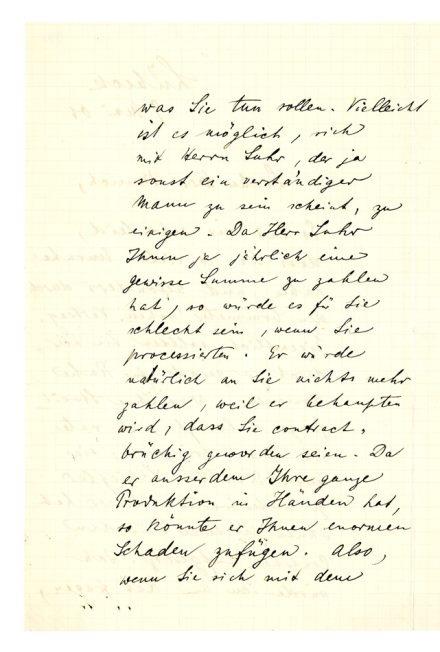 was Sie tun sollen. Vielleicht
ist es möglich, sich
mit Herrn Luhr, der ja
sonst ein verständiger
Mann zu sein scheint, zu
einigen. Da Herr Luhr
Ihnen ja jährlich eine
gewisse Summe zu zahlen
hat, so würde es für Sie
schlecht sein, wenn Sie
processierten. Er würde
natürlich an Sie nichts mehr
zahlen, weil er behaupten
wird, dass Sie contract-
brüchig geworden seien. Da
er ausserdem Ihre ganze
Produktion in Händen hat,
so könnte er Ihnen enormen
Schaden zufügen. Also,
wenn Sie sich mit dem